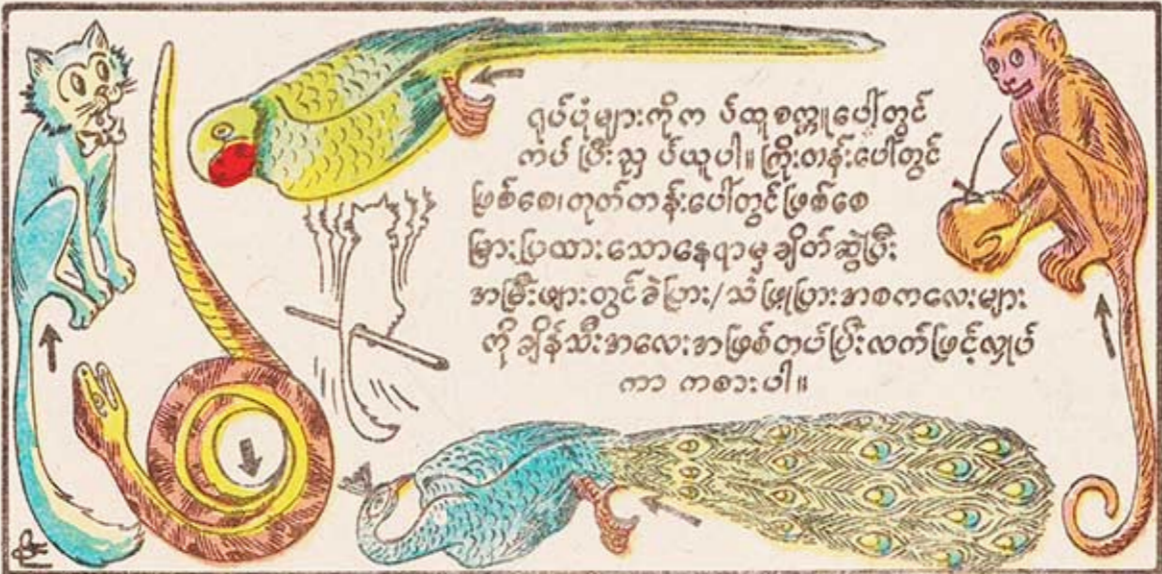 ရုပ်ပုံများကိုက ပ်ထူစက္ကူပေါ်တွင်
ကပ် ပြီးညှ ပ်ယူပါ။ ကြိုးတန်းပေါ်တွင်
ဖြစ်စေ၊ တုတ်တန်းပေါ်တွင်ဖြစ်စေ
မြှားပြထားသောနေရာမှ ချိတ်ဆွဲပြီး
အမြီးဖျားတွင် ခဲပြား/သံဖြူပြားအစကလေးများ
ကို ချိန်သီးအလေးအဖြစ်တပ်ပြီးလက်ဖြင့်လှုပ်
ကာ ကစားပါ။